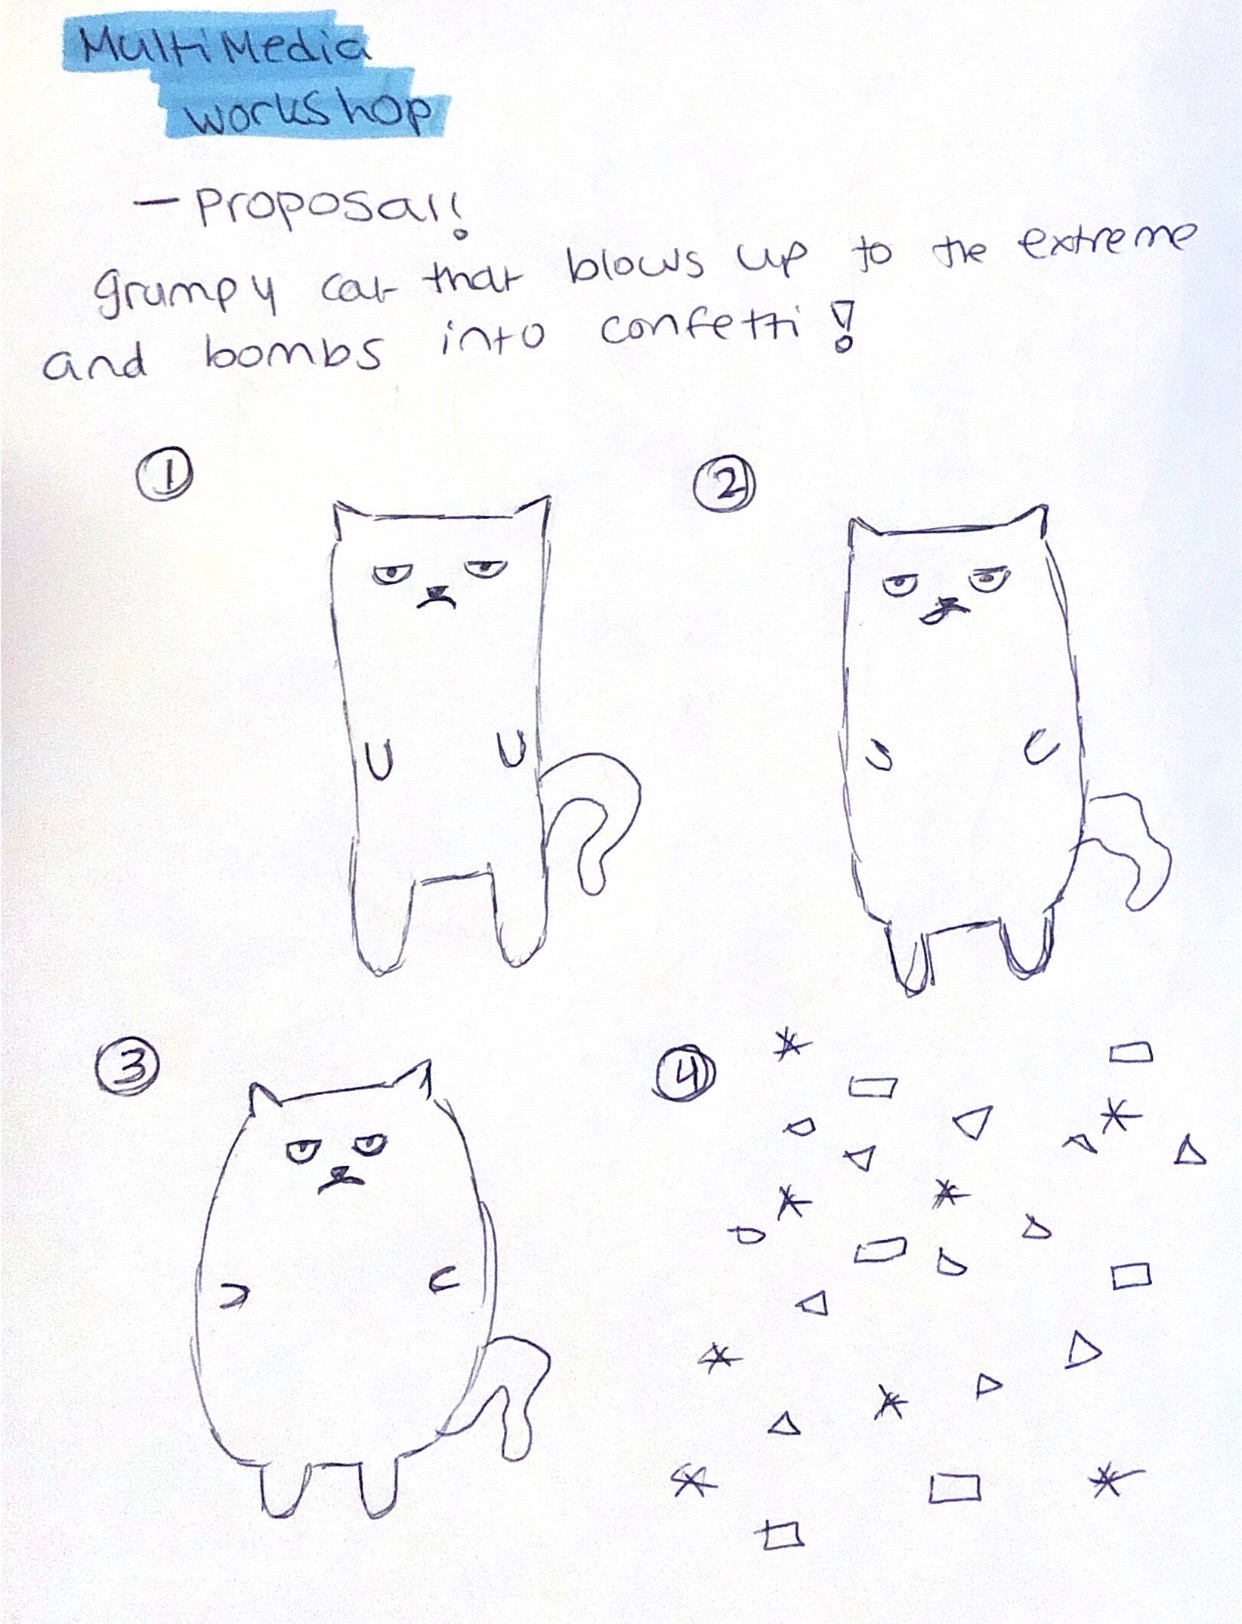 MultiMedia
workshop
— Proposal!
grumpy cat that blows up to the extreme
and bombs into confetti!
1
2
3
4